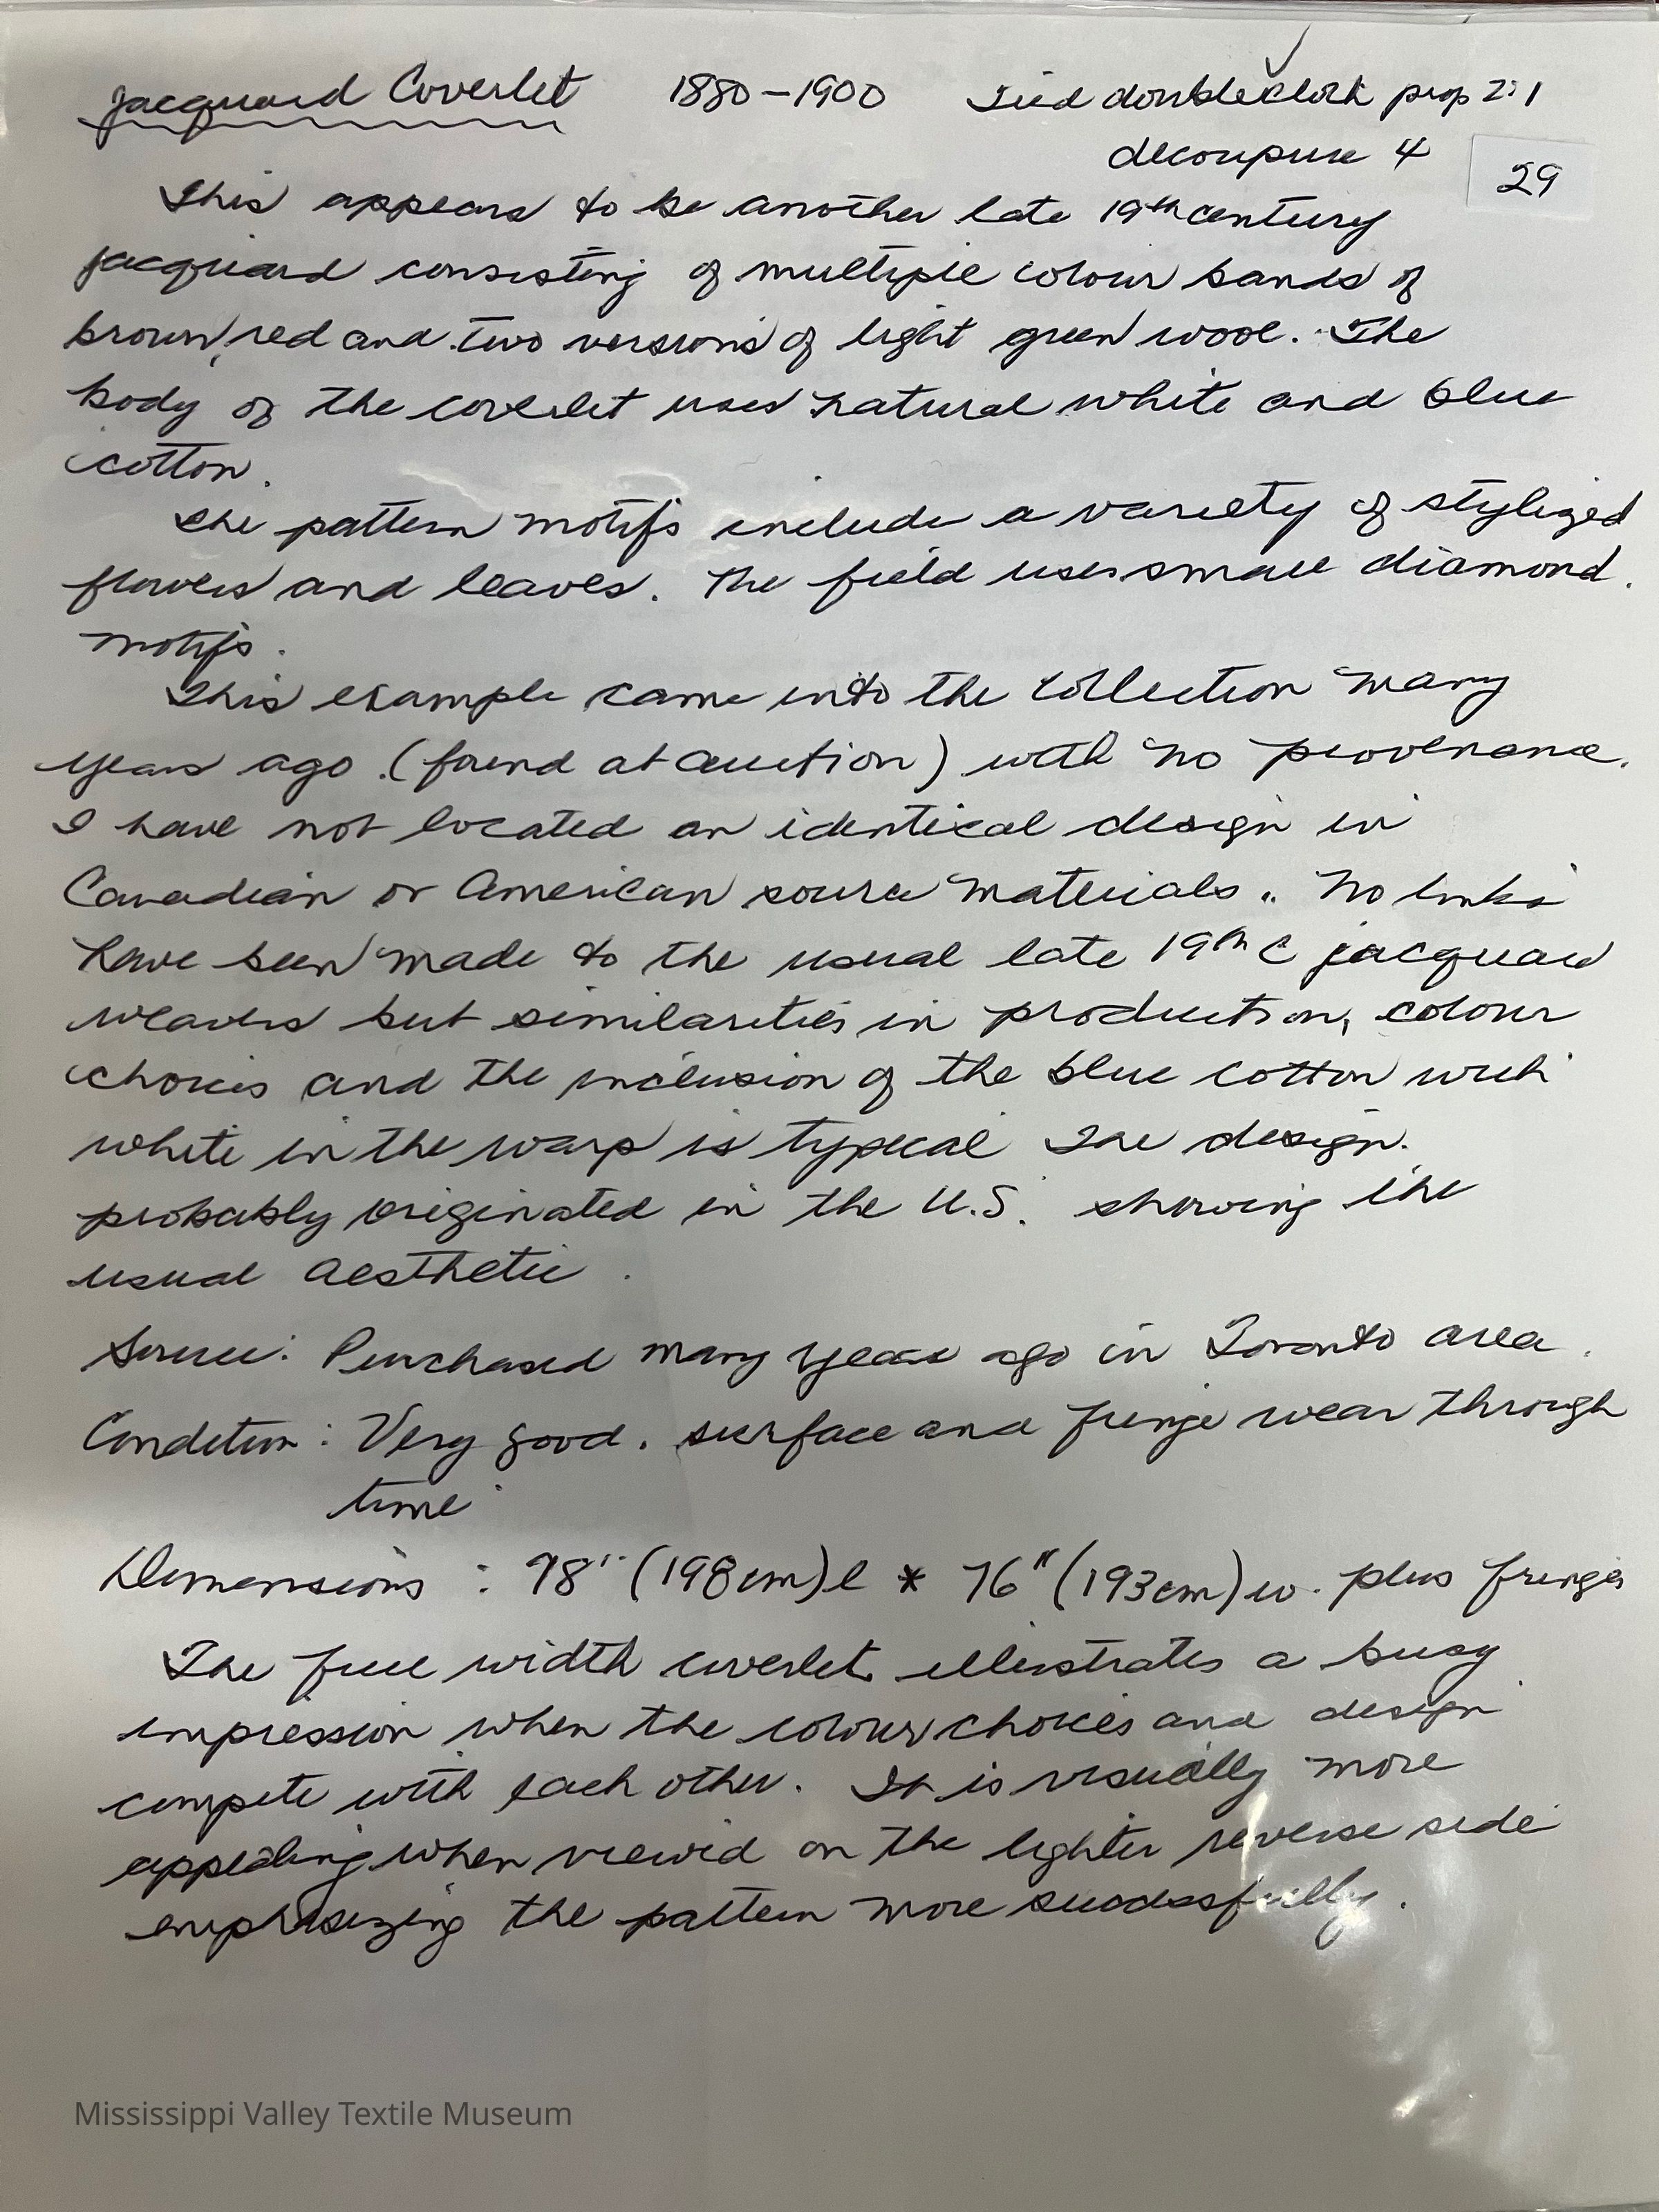 Jacquard Coverlet 1880-1900 Tied doublecloth prop 2:1
decoupure 4
29
This appears to be another late 19th century
jacquard consisting of multiple colour bands of
brown, red and two versions of light green wool. The
body of the coverlet uses natural white and blue
cotton.
The pattern motifs include a variety of stylized
flowers and leaves. The field uses small diamond
motifs.
This example came into the collection many
years ago (found at auction) with no provenance.
I have not located an identical design in
Canadian or American source materials. No links
have been made to the usual late 19th C jacquard
weavers but similarities in production, colour
choices and the inclusion of the blue cotton with
white in the warp is typical The design
probably originated in the U.S. showing the
usual aesthetic.
Source: Purchased many years ago in Toronto area.
Condition: Very good. surface and fringe wear through
time
Dimensions: 78" (198cm) l * 76" (193cm) w. plus fringes
The full width coverlet illustrates a busy
impression when the colour choices and design
compete with each other. It is visually more
appealing when viewed on the lighter reverse side
emphasizing the pattern more successfully.
Mississippi Valley Textile Museum